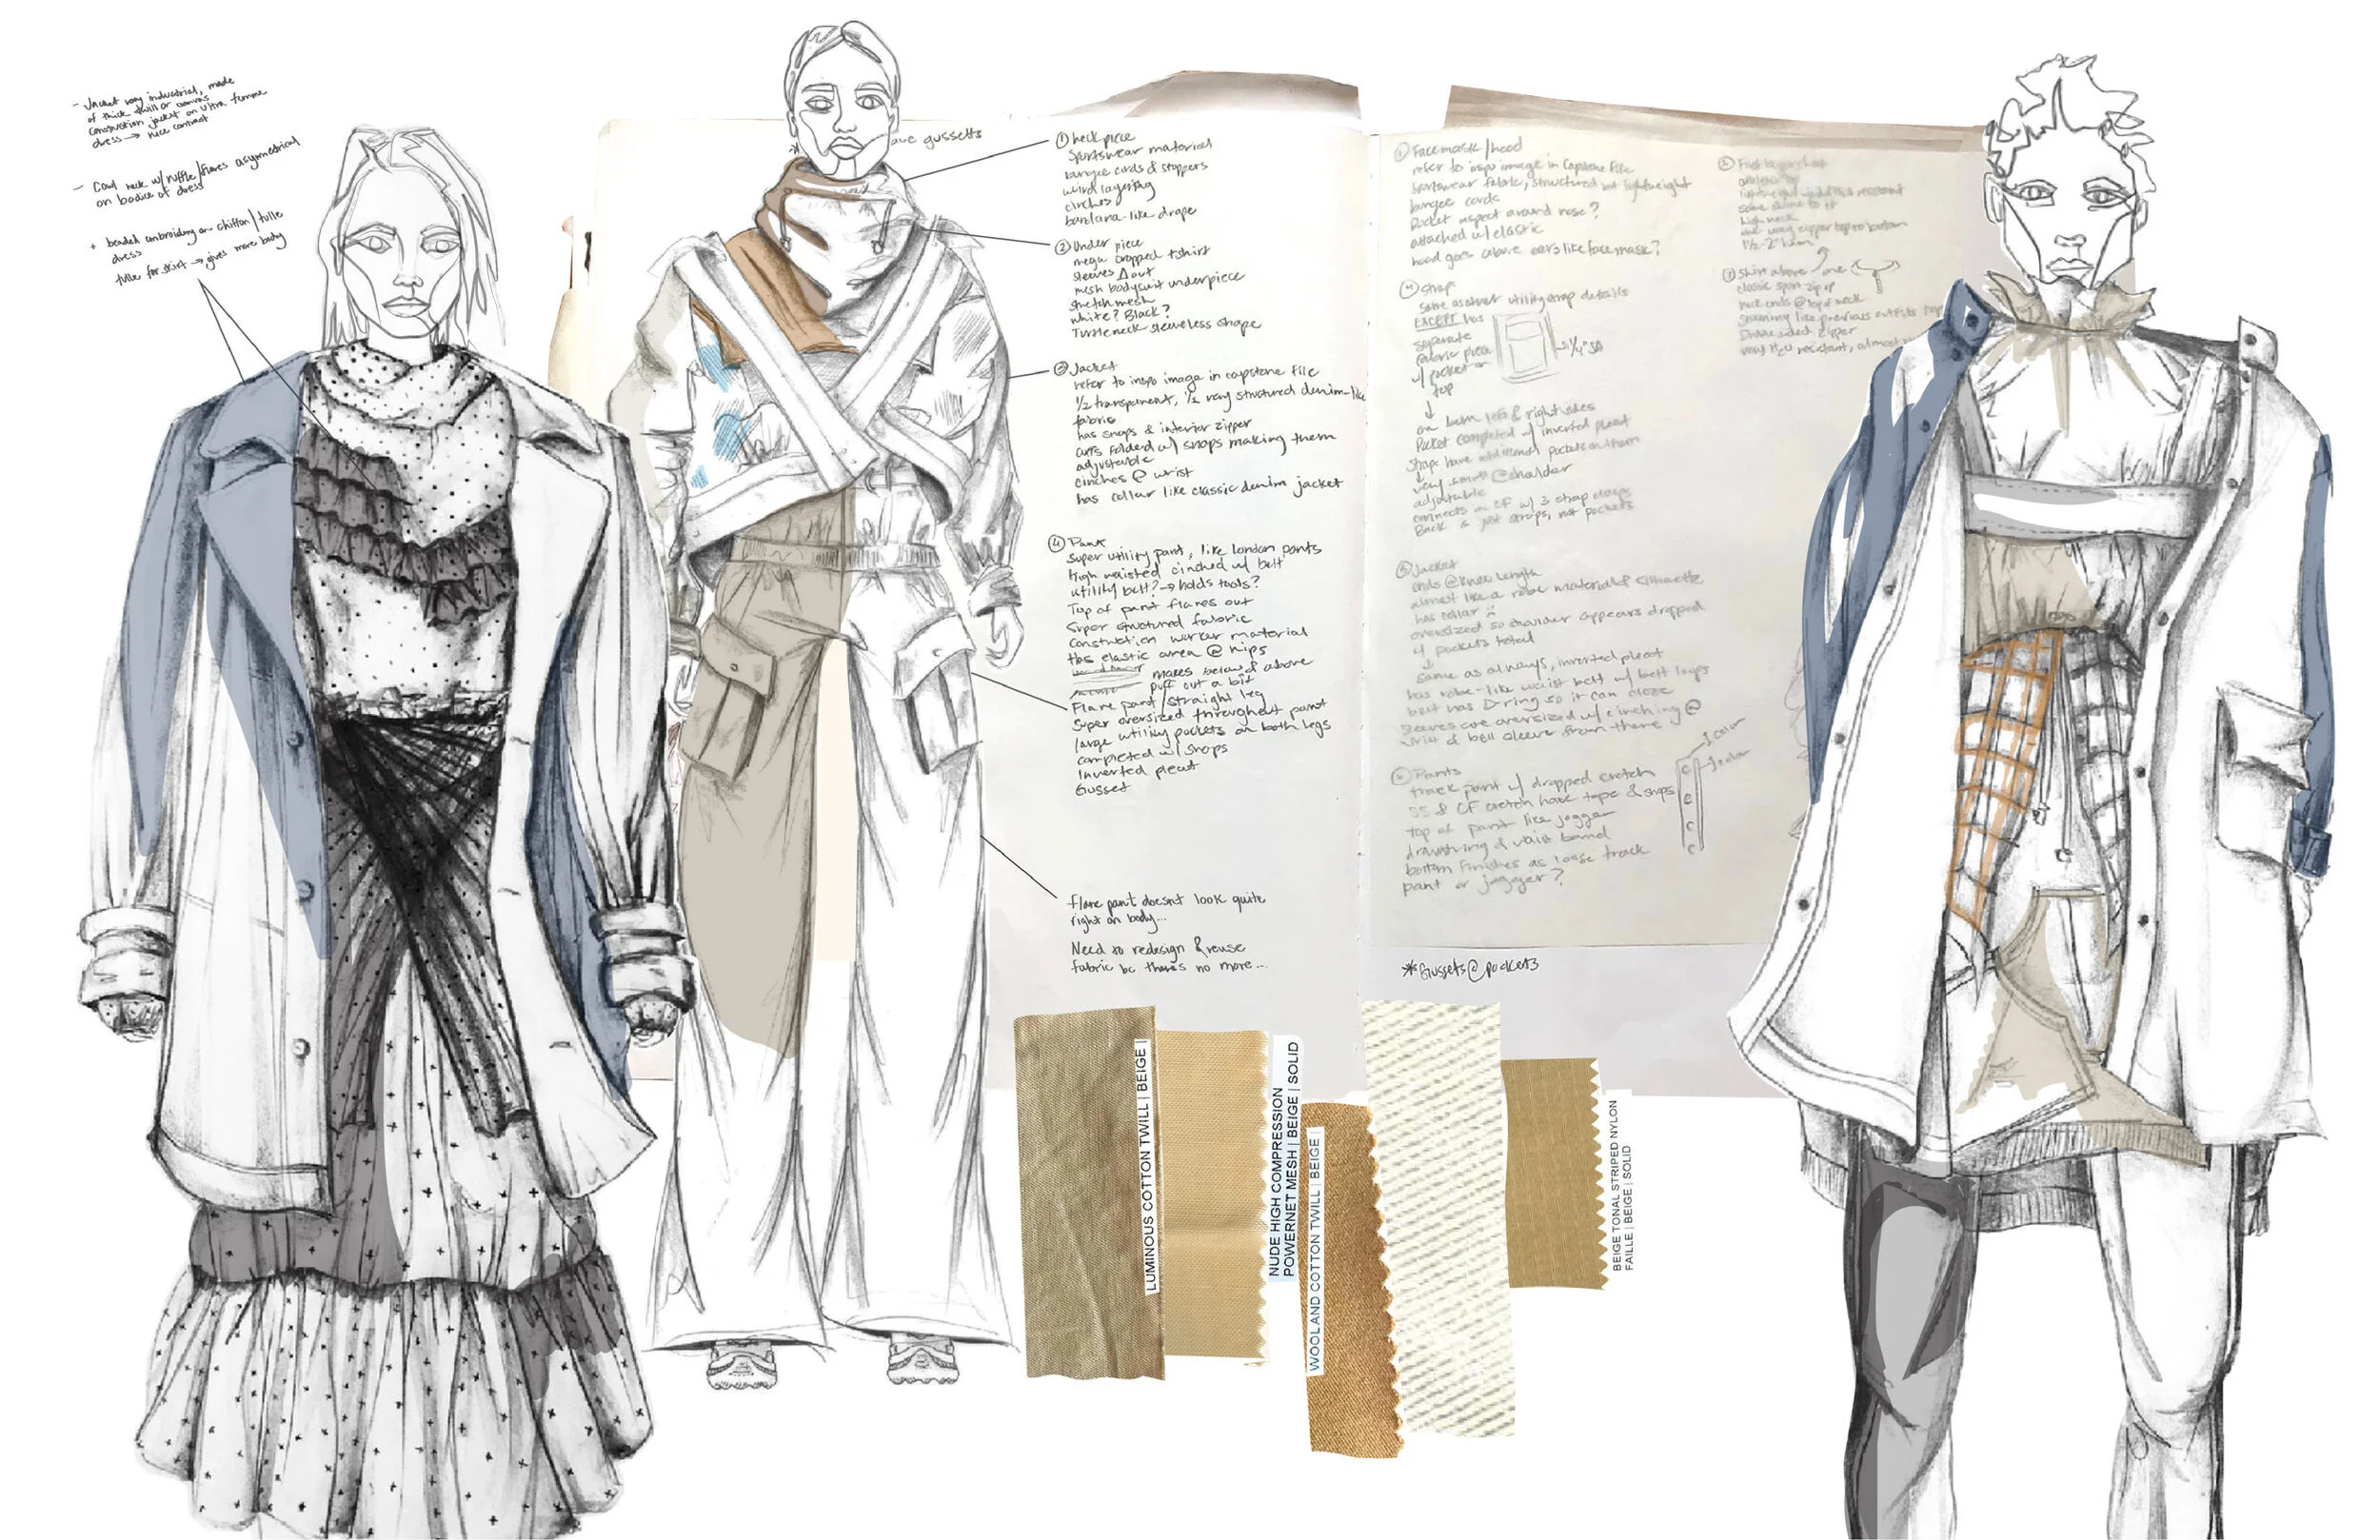 - Jacket very industrial, made
of thick twill or canvas
construction jacket on ultra femme
dress → nice contrast
- Cowl neck w/ ruffle/flares asymmetrical
on bodice of dress
+ beaded embroidery on chiffon/tulle
dress
tulle for skirt → gives more body
gussetts
① neck piece
Sportswear material
bungee cords & stoppers
weird layering
cinches
bandana-like drape
② Under piece
mega cropped tshirt
sleeves Δ out
mesh bodysuit underpiece
stretch mesh
white? Black?
Turtleneck sleeveless shape
③ Jacket
refer to inspo image in capstone file
1/2 transparent, 1/2 very structured denim-like
fabric
has snaps & interior zipper
cuffs folded w/ snaps making them
adjusteable
cinches @ wrist
has collar like classic denim jacket
④ Pants
Super utility pant, like london pants
high waisted cinched w/ belt
utility belt? → holds tools?
Top of pant flares out
Super structured fabric
Construction worker material
Has elastic area @ hips
makes below & above
puff out a bit
Flare pant/straight leg
Super oversized throughout pant
large utility pockets on both legs
completed w/ snaps
Inverted pleat
Gusset
flare pant doesnt look quite
right on body...
Need to redesign & reuse
fabric bc there's no more...
Facemask/hood
refer to inspo image in Capstone file
Sportswear fabric, structured but lightweight
bungee cords
Pocket aspect around nose?
attached w/ elastic
hood goes above ears like face mask?
Strap
Same as other utility strap details
EXCEPT has
separate
fabric piece
w/ pocket on
top
→ 1/4" SA
↓
on both left & right sides
Pocket completed w/ inverted pleat
Straps have additional pockets on them
very small @ shoulder
adjustable
connects @ CF w/ 3 strap clasps
Back is just straps, not pockets
Jacket
ends @ knee length
almost like a robe material & silhouette
has collar
oversized so shoulder appears dropped
4 pockets total
↓
same as always, inverted pleat
has robe-like waist belt w/ belt loops
belt has D-ring so it can close
sleeves are oversized w/ cinching @
wrist & bell sleeve from there
Pants
track pant w/ dropped crotch
SS & CF crotch have tape & snaps
top of pant like jogger
drawstring & waist band
bottom finishes as loose track
pant or jogger?
1 color
1 color
*Gussets @ pockets
high neck
one way zipper top to bottom
1 1/2 - 2" hem
Shirt above
one
classic sport zip up
neck ends @ top of neck
seaming like previous outfits
zipper
very H₂O resistant, almost
LUMINOUS COTTON TWILL | BEIGE |
NUDE HIGH COMPRESSION
POWERNET MESH | BEIGE | SOLID
WOOLAND COTTON TWILL | BEIGE |
BEIGE TONAL STRIPED NYLON
FAILLE | BEIGE | SOLID